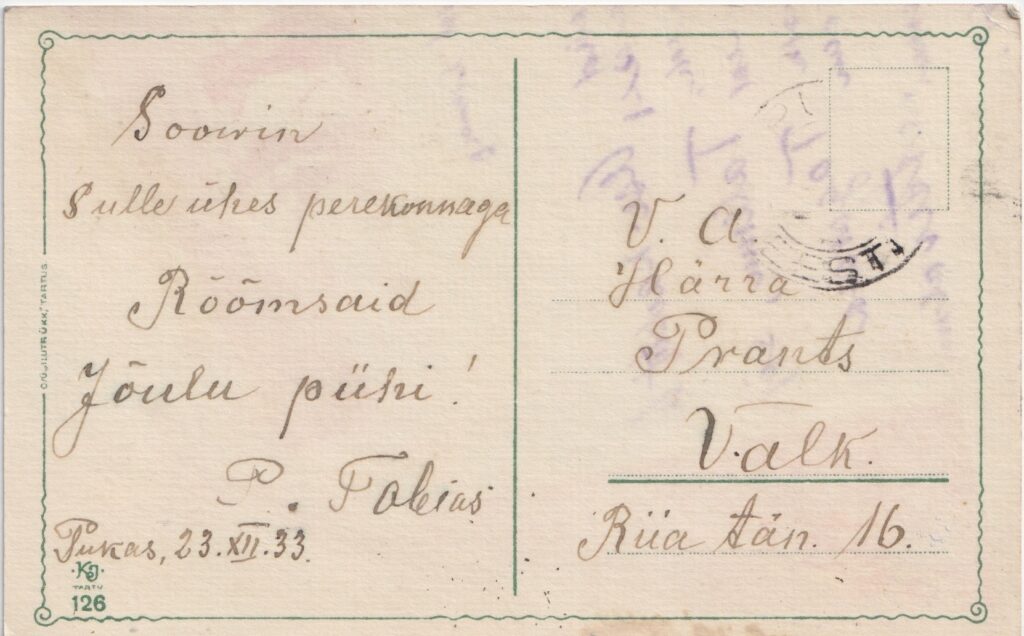 Soowin
Sulle ühes perekonnaga
Rõõmsaid
Jõulu pühi!
P. Tobias
Pukas, 23.XII.33.
KJ
TARTU
126
TARTUS
V. A
Härra
Prants
Valk.
Riia tän. 16.
EESTI